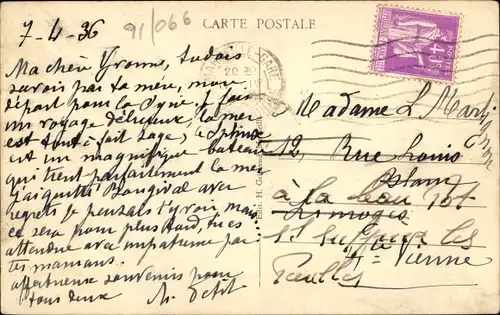 CARTE POSTALE
7-4-36
91/066
Ma chère Yvonne, tu dois
savoir par ta mère, mon
départ pour la Syrie, je fais
un voyage délicieux, la mer
est tout à fait sage, le Sphinx
est un magnifique bateau
qui tient parfaitement la mer
j'ai quitté Bougival avec
regrets je pensais t'y voir mais
ce sera pour plus tard, tu es
attendue avec impatience par
tes mamans.
affectueux souvenirs pour
tous deux
M. Petit
Madame L.
12, Rue Louis
Blanc
à la
Limoges
les
Hte Vienne